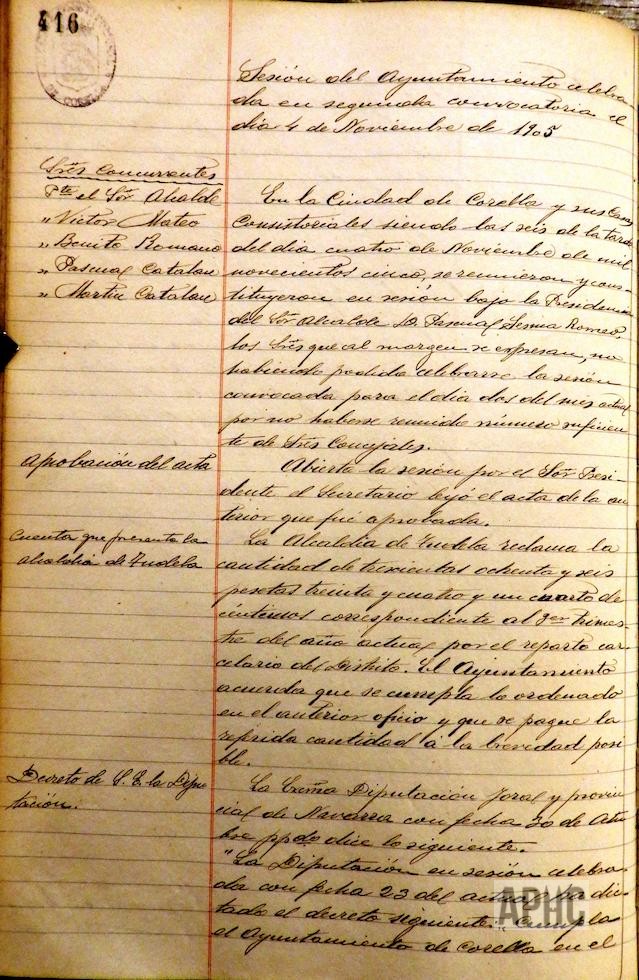 416
DE CORELLA
Sesión del Ayuntamiento celebra
da en segunda convocatoria el
dia 4 de Noviembre de 1905
Srēs Concurrentes
Pte el Sor Alcalde
" Victor Mateo
" Benito Romano
" Pascual Catalan
" Martin Catalan
En la Ciudad de Corella y sus Casas
Consistoriales siendo las seis de la tarde
del dia cuatro de Noviembre de mil
novecientos cinco, se reunieron y cons-
tituyeron en sesión bajo la Presidencia
del Sor Alcalde D. Pascual Sesma Romeo,
los Srēs que al margen se expresan, no
habiendo podido celebrarse la sesión
convocada para el dia dos del mes actual
por no haberse reunido número suficien
te de Srēs Concejales.
Aprobación del acta
Abierta la sesión por el Sor Presi-
dente el Secretario leyó el acta de la an
terior que fué aprobada.
Cuenta que presenta la
alcaldia de Tudela
La Alcaldia de Tudela reclama la
cantidad de trescientos ochenta y seis
pesetas treinta y cuatro y un cuarto de
céntimos correspondiente al 3er trimes-
tre del año actual por el reparto car
celario del Distrito. El Ayuntamiento
acuerda que se cumpla lo ordenado
en el anterior oficio y que se pague la
referida cantidad á la brevedad posi
ble.
Decreto de S. E. la Dipu
tación.
La Excma Diputación foral y provin
cial de Navarra con fecha 30 de Octu
bre ppdo dice lo siguiente.
"La Diputación en sesión celebra
da con fecha 23 del actual ha dic
tado el decreto siguiente. Cumpla
el Ayuntamiento de Corella en el
APHC